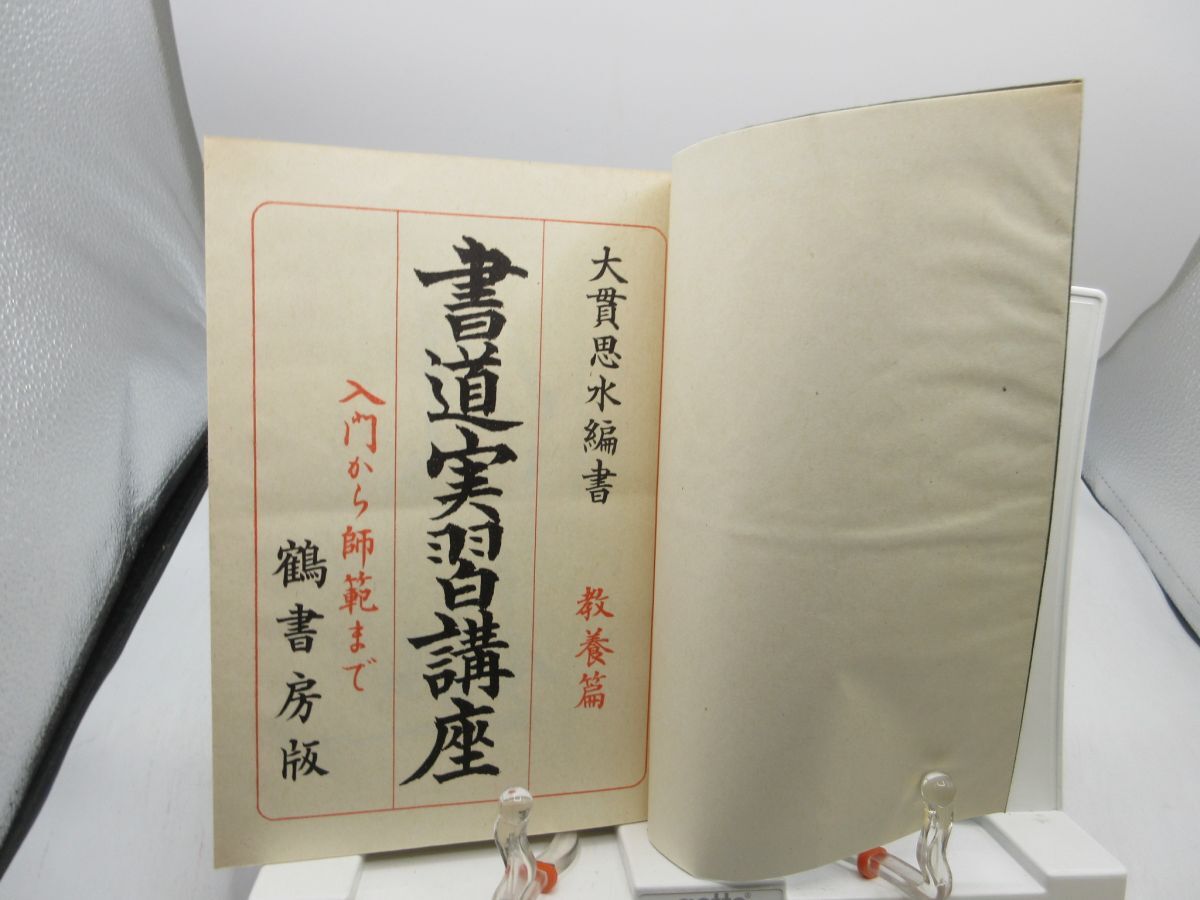 大貫思水編書
教養篇
書道実習講座
入門から師範まで
鶴書房版